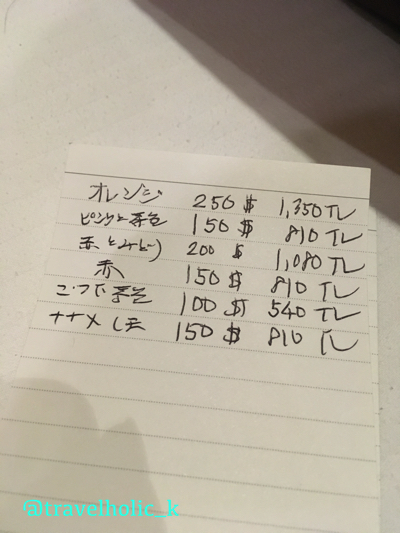 オレンジ 250 $ 1,350 TL
ピンクと茶色 150 $ 810 TL
赤とみどり 200 $ 1,080 TL
赤 150 $ 810 TL
茶色 100 $ 540 TL
ナナメ 150 $ 810 TL
@travelholic_k